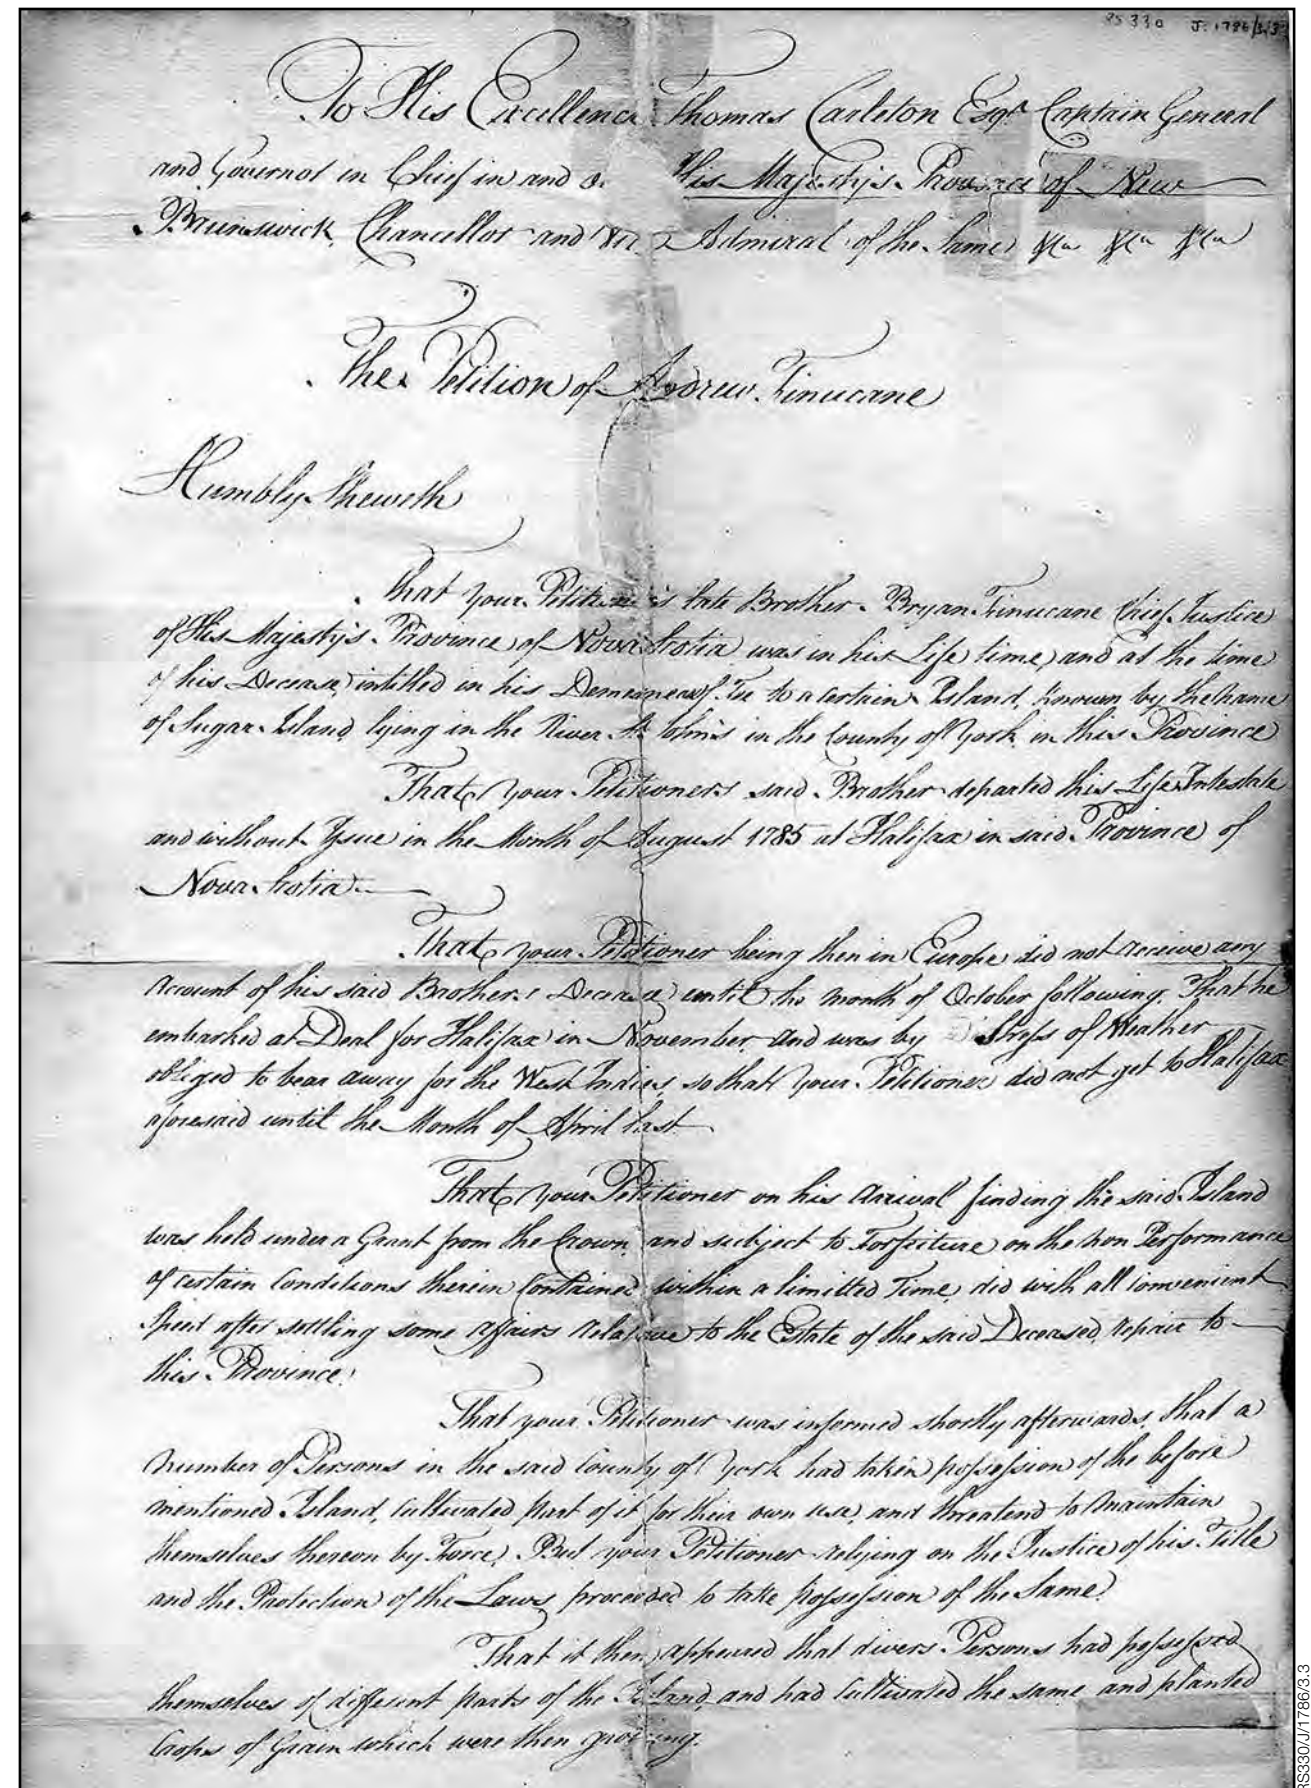 RS 330 J: 1786/3.3
To His Excellency Thomas Carleton Esqr Captain General
and Governor in Chief in and o. His Majesty's Province of New
Brunswick, Chancellor and Vice Admiral of the Same &ca &ca &ca
The Petition of Andrew Finucane
Humbly Sheweth
That your Petitioner's late Brother Bryan Finucane Chief Justice
of His Majesty's Province of Nova Scotia was in his Life time, and at the time
of his Decease, intitled in his Demesne as of Fee to a certain Island, known by the Name
of Sugar Island lying in the River St. John's in the County of York in this Province
That your Petitioners said Brother departed this Life Intestate
and without Issue in the Month of August 1785 at Halifax in said Province of
Nova Scotia
That your Petitioner being then in Europe did not receive any
Account of his said Brothers Decease until the month of October following. That he
embarked at Deal for Halifax in November, and was by Stress of Weather
obliged to bear away for the West Indies, so that your Petitioner did not get to Halifax
aforesaid until the Month of April last
That your Petitioner on his Arrival finding the said Island
was held under a Grant from the Crown, and subject to Forfeiture on the Non Performance
of certain Conditions therein Contained within a limitted Time, did with all convenient
Speed after settling some affairs relative to the Estate of the said Deceased, repair to
this Province.
That your Petitioner was informed shortly afterwards, that a
Number of Persons in the said County of York had taken possession of the before
mentioned Island, cultivated part of it for their own use, and threatend to maintain
themselves thereon by Force. But your Petitioner relying on the Justice of his Title
and the Protection of the Laws, proceeded to take possession of the Same.
That it then appeared that divers Persons had possessed
themselves of different parts of the Island, and had Cultivated the same and planted
Crops of Grain which were then growing.
RS330/J/1786/3.3